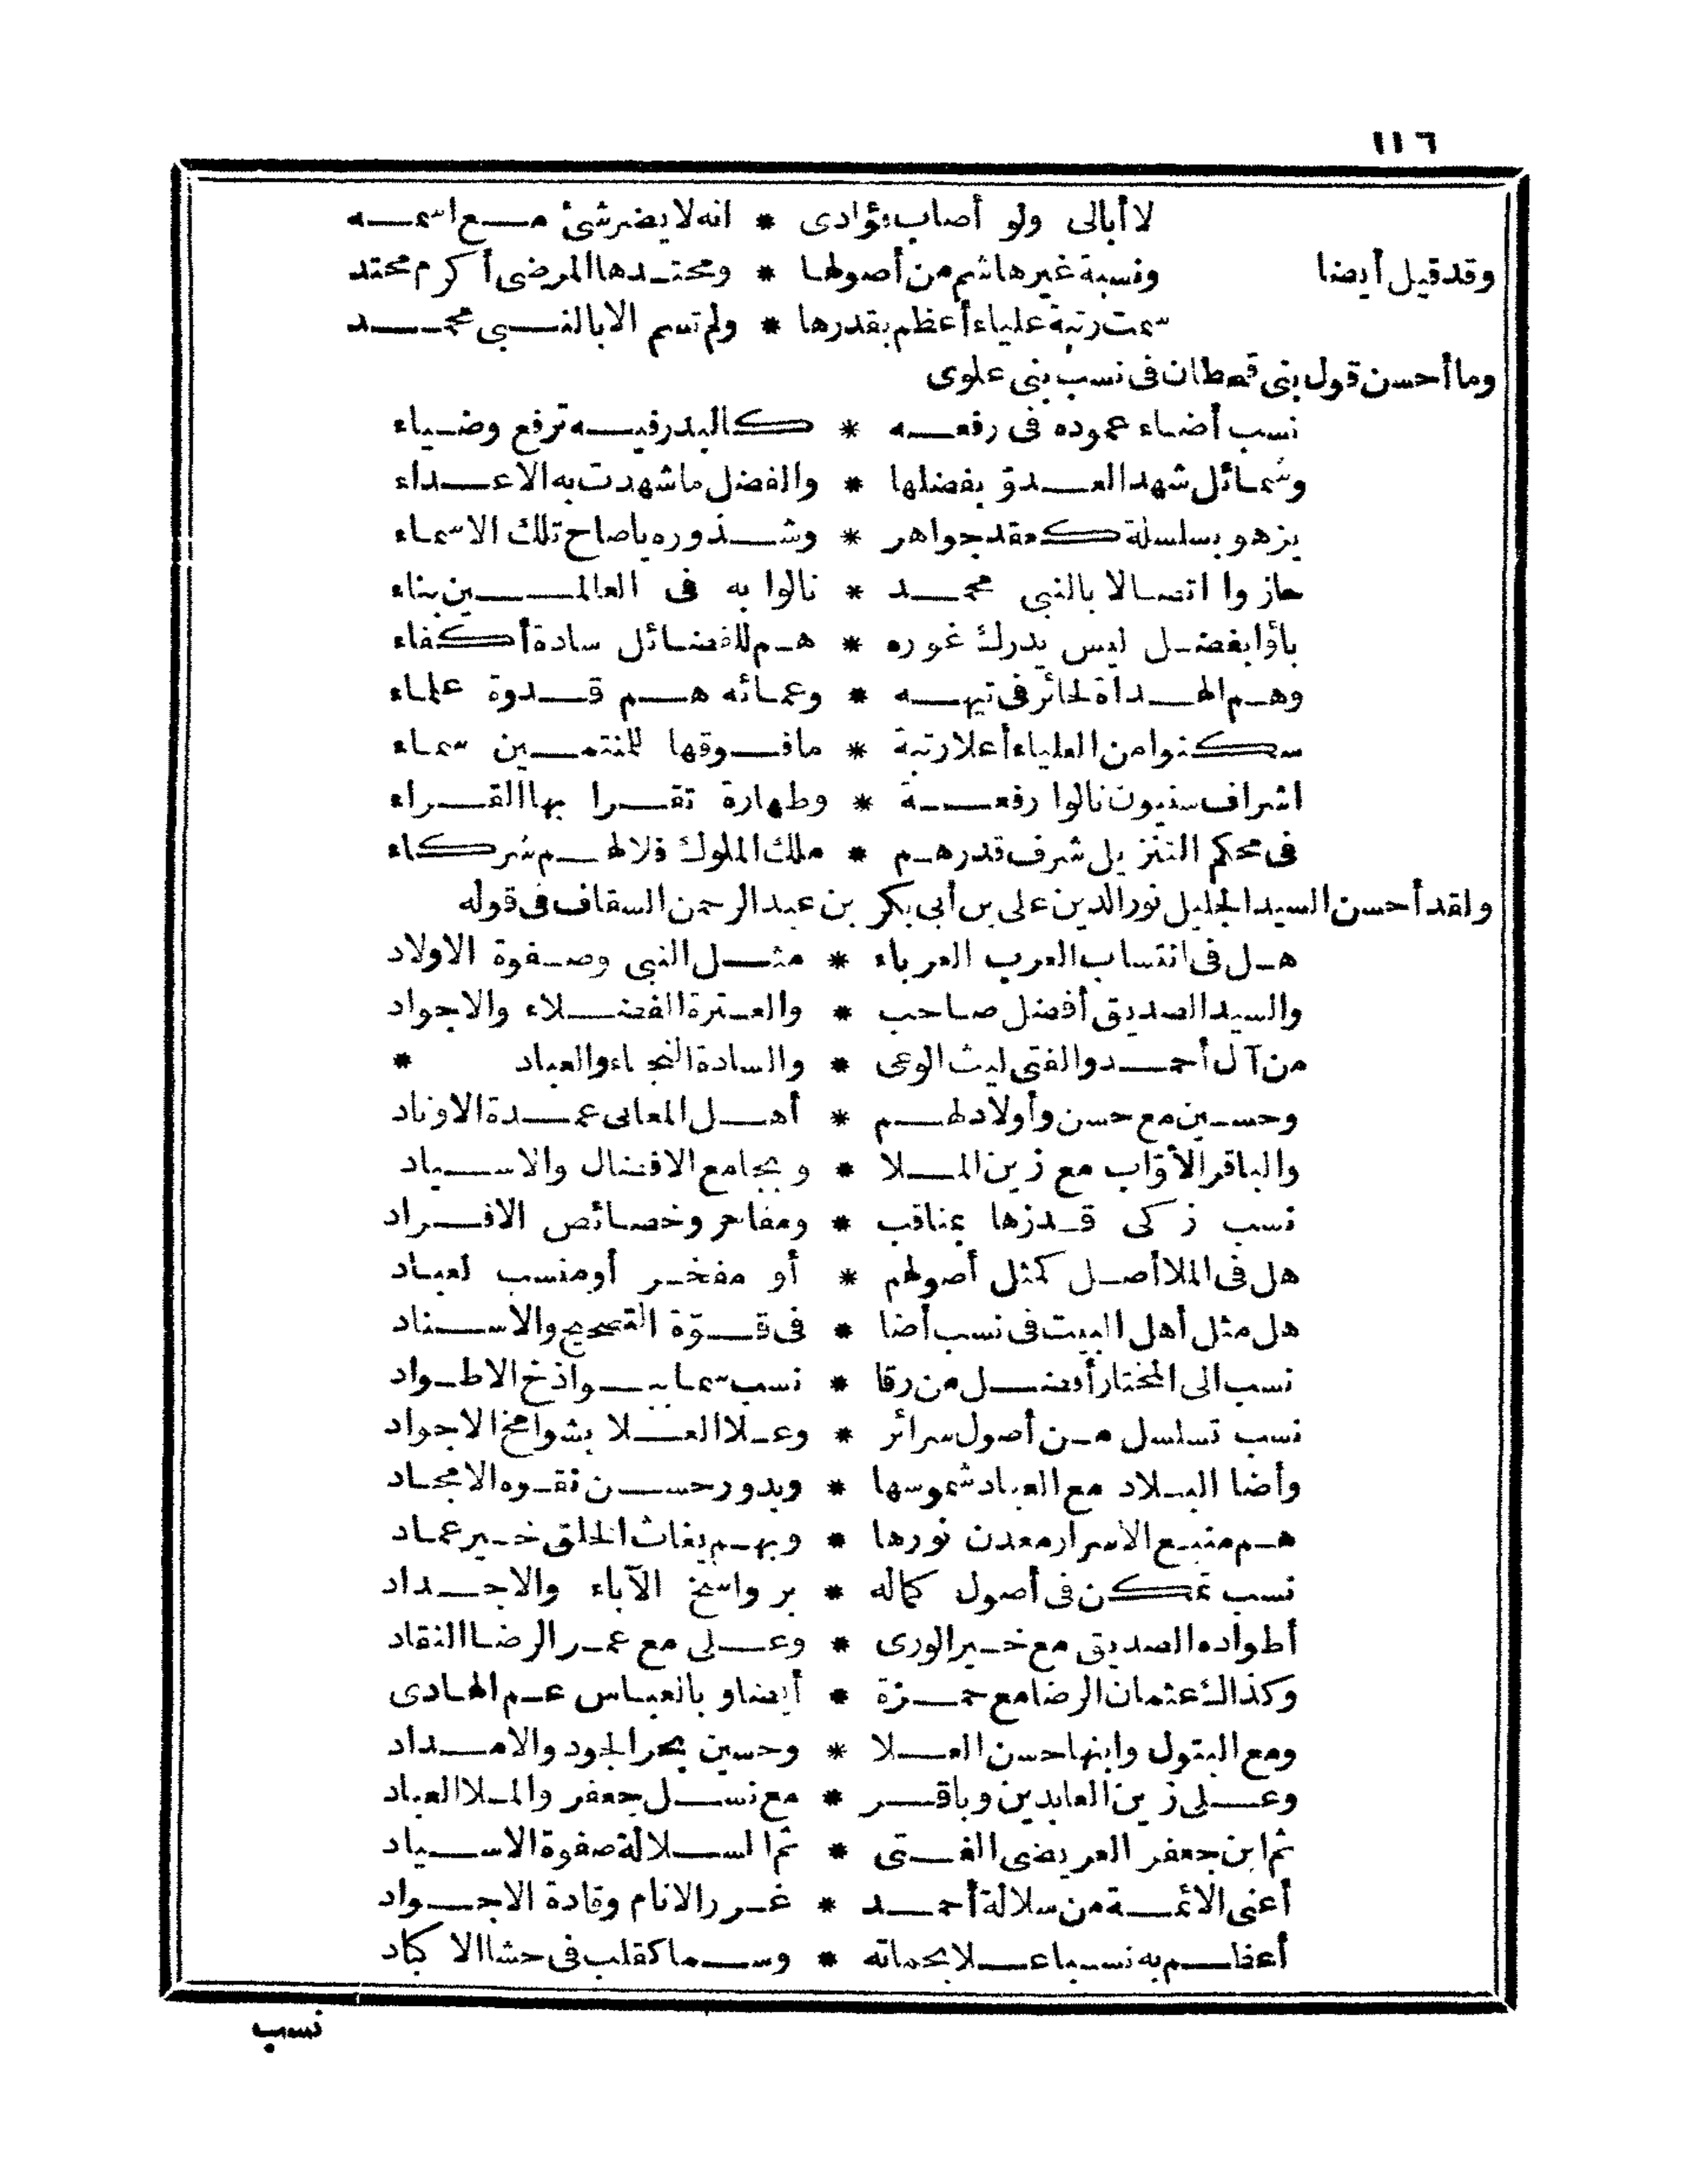 ١١٦
لا أبالى ولو أصاب فؤادى * انه لا يضر شئ مع اسمه
وقد قيل أيضا ونسبة غير هاشم من أصولها * ومحتدها المرضى أكرم محتد
سمت رتبة علياء أعظم بقدرها * ولم تسم الا بالنبى محمد
وما أحسن قول بنى قحطان فى نسب بنى علوى
نسب أضاء عموده فى رفعه * كالبدر فيه ترفع وضياء
وشمائل شهد العدوّ بفضلها * والفضل ما شهدت به الاعداء
يزهو بسلسلة كعقد جواهر * وشذوره ياصاح تلك الاسماء
حازوا اتصالا بالنبى محمد * نالوا به فى العالمين بناء
باؤا بفضل ليس يدرك غوره * هم للفضائل سادة أكفاء
وهم الهداة لحائر فى تيهه * وعمائه هم قدوة علماء
سكنوا من العلياء أعلا رتبة * مافوقها للمنتمين سماء
اشراف سنيون نالوا رفعة * وطهارة تقرا بها القراء
فى محكم التنزيل شرف قدرهم * ملك الملوك فلا لهم شركاء
ولقد أحسن السيد الجليل نور الدين على بن أبى بكر بن عبد الرحمن السقاف فى قوله
هل فى انتساب العرب العرباء * مثل النبى وصفوة الاولاد
والسيد الصديق أفضل صاحب * والعترة الفضلاء والاجواد
من آل أحمد والفتى ليث الوعى * والسادة النجباء والعباد *
وحسين مع حسن وأولاد لهم * أهل المعانى عمدة الاوتاد
والباقر الأوّاب مع زين الملا * وبجامع الافضال والاسياد
نسب زكى قد زها بمناقب * ومفاخر وخصائص الافراد
هل فى الملا أصل كمثل أصولهم * أو مفخر أو منسب لعباد
هل مثل أهل البيت فى نسب أضا * فى قوّة التصحيح والاسناد
نسب الى المختار أفضل من رقا * نسب سما ببواذخ الاطواد
نسب تسلسل من أصول سرائر * وعلا العلا بشوامخ الاجواد
وأضا البلاد مع العباد شموسها * وبدور حسن نقوه الامجاد
هم منبع الاسرار معدن نورها * وبهم يغاث الخلق خير عماد
نسب تمكن فى أصول كماله * برواسخ الآباء والاجداد
أطواده الصديق مع خير الورى * وعلى مع عمر الرضا النقاد
وكذالك عثمان الرضا مع حمزة * أيضا وبالعباس عم الهادى
ومع البتول وابنها حسن العلا * وحسين بحر الجود والامداد
وعلى زين العابدين وباقر * مع نسل جعفر والملا العباد
ثم ابن جعفر العريضى الفتى * ثم السلالة صفوة الاسياد
أعنى الائمة من سلالة أحمد * غرر الانام وقادة الاجواد
أعظم به نسبا علا بحماته * وسما كقلب فى حشا الاكباد
نسب